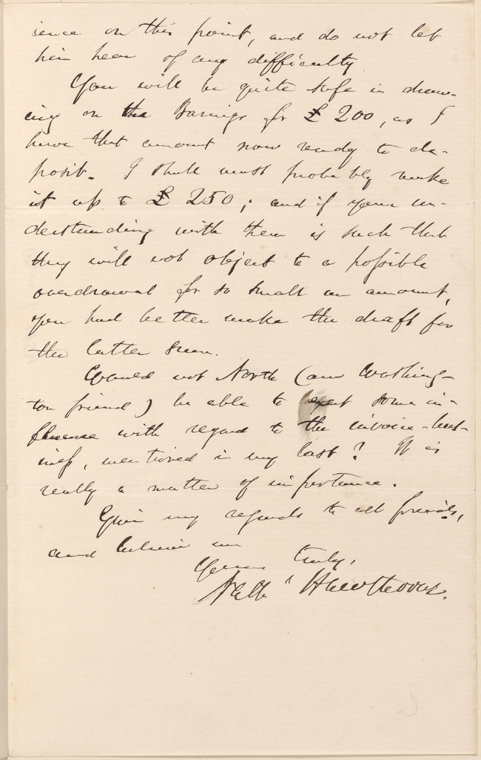 ience on this point, and do not let
him hear of any difficulty
You will be quite safe in draw-
ing on the Barings for £200, as I
have that amount now ready to de-
posit. I shall most probably make
it up to £250; and if your un-
derstanding with them is such that
they will not object to a possible
overdrawal for so small an amount,
you had better make the draft for
the latter sum.
Would not North (our Washing-
ton friend) be able to exert some in-
fluence with regard to the invoice-bus-
iness, mentioned in my last? It is
really a matter of importance.
Give my regards to all friends,
and believe me
Yours truly,
Nath'l Hawthorne.